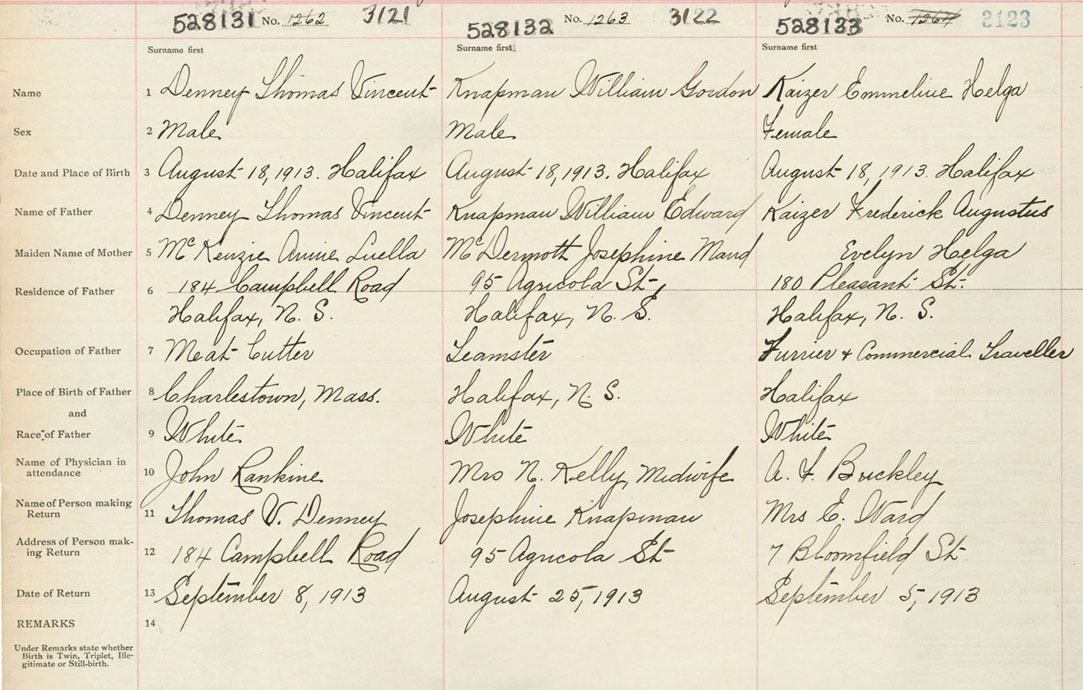 528131 No. 1262 3121 528132 No. 1263 3122 528133 No. 1264 3123
Surname first Surname first Surname first
Name 1 Denney Thomas Vincent Knapman William Gordon Kaizer Emmeline Helga
Sex 2 Male Male Female
Date and Place of Birth 3 August 18, 1913. Halifax August 18, 1913. Halifax August 18, 1913. Halifax
Name of Father 4 Denney Thomas Vincent Knapman William Edward Kaizer Frederick Augustus
Maiden Name of Mother 5 McKenzie Annie Luella McDermoth Josephine Maud Evelyn Helga
Residence of Father 6 184 Campbell Road 95 Agricola St. 180 Pleasant St.
Halifax, N. S. Halifax, N. S. Halifax, N. S.
Occupation of Father 7 Meat Cutter Teamster Furrier & Commercial Traveller
Place of Birth of Father 8 Charlestown, Mass. Halifax, N. S. Halifax
and
Race of Father 9 White White White
Name of Physician in
attendance 10 John Rankine Mrs N. Kelly, Midwife A. F. Buckley
Name of Person making
Return 11 Thomas V. Denney Josephine Knapman Mrs E. Ward
Address of Person mak-
ing Return 12 184 Campbell Road 95 Agricola St 7 Bloomfield St
Date of Return 13 September 8, 1913 August 25, 1913 September 5, 1913
REMARKS 14
Under Remarks state whether
Birth is Twin, Triplet, Ille-
gitimate or Still-birth.